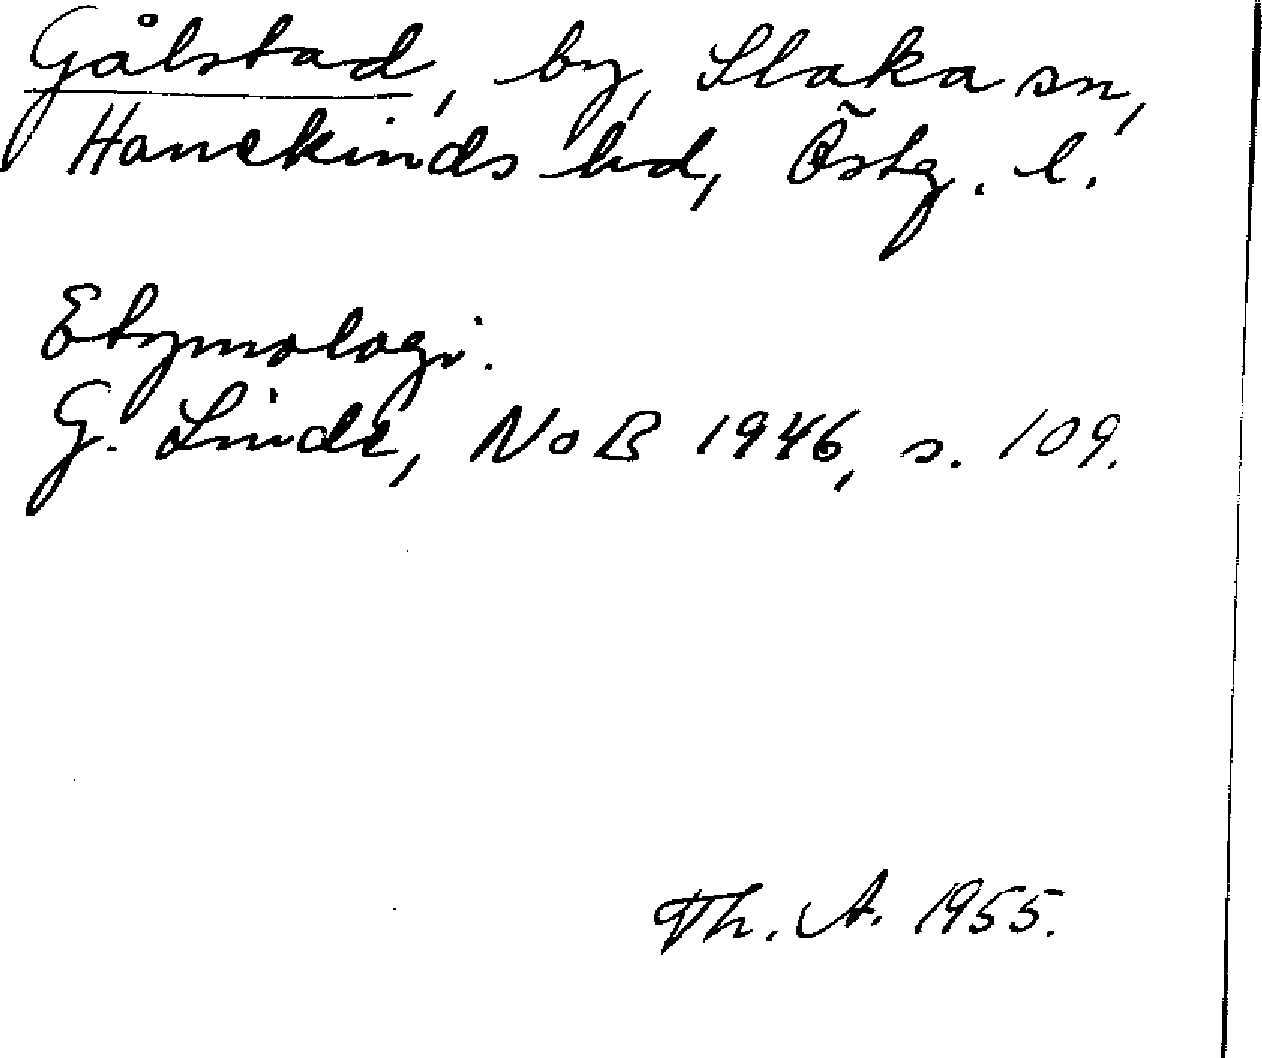 Gålstad, by, Slaka sn,
Hanekinds hd, Östg. l.
Etymologi.
G. Linde, NoB 1946, s. 109.
Th. A. 1955.